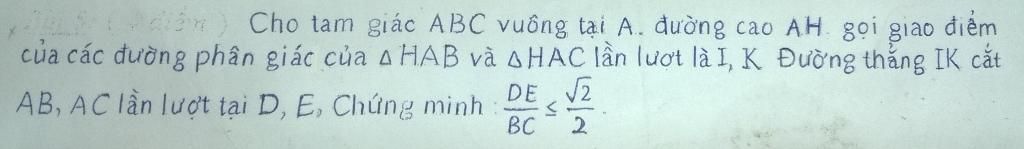 Cho tam giác ABC vuông tại A. đường cao AH. gọi giao điểm
của các đường phân giác của ΔHAB và ΔHAC lần lượt là I, K Đường thẳng IK cắt
AB, AC lần lượt tại D, E, Chứng minh : DE/BC ≤ √2/2.